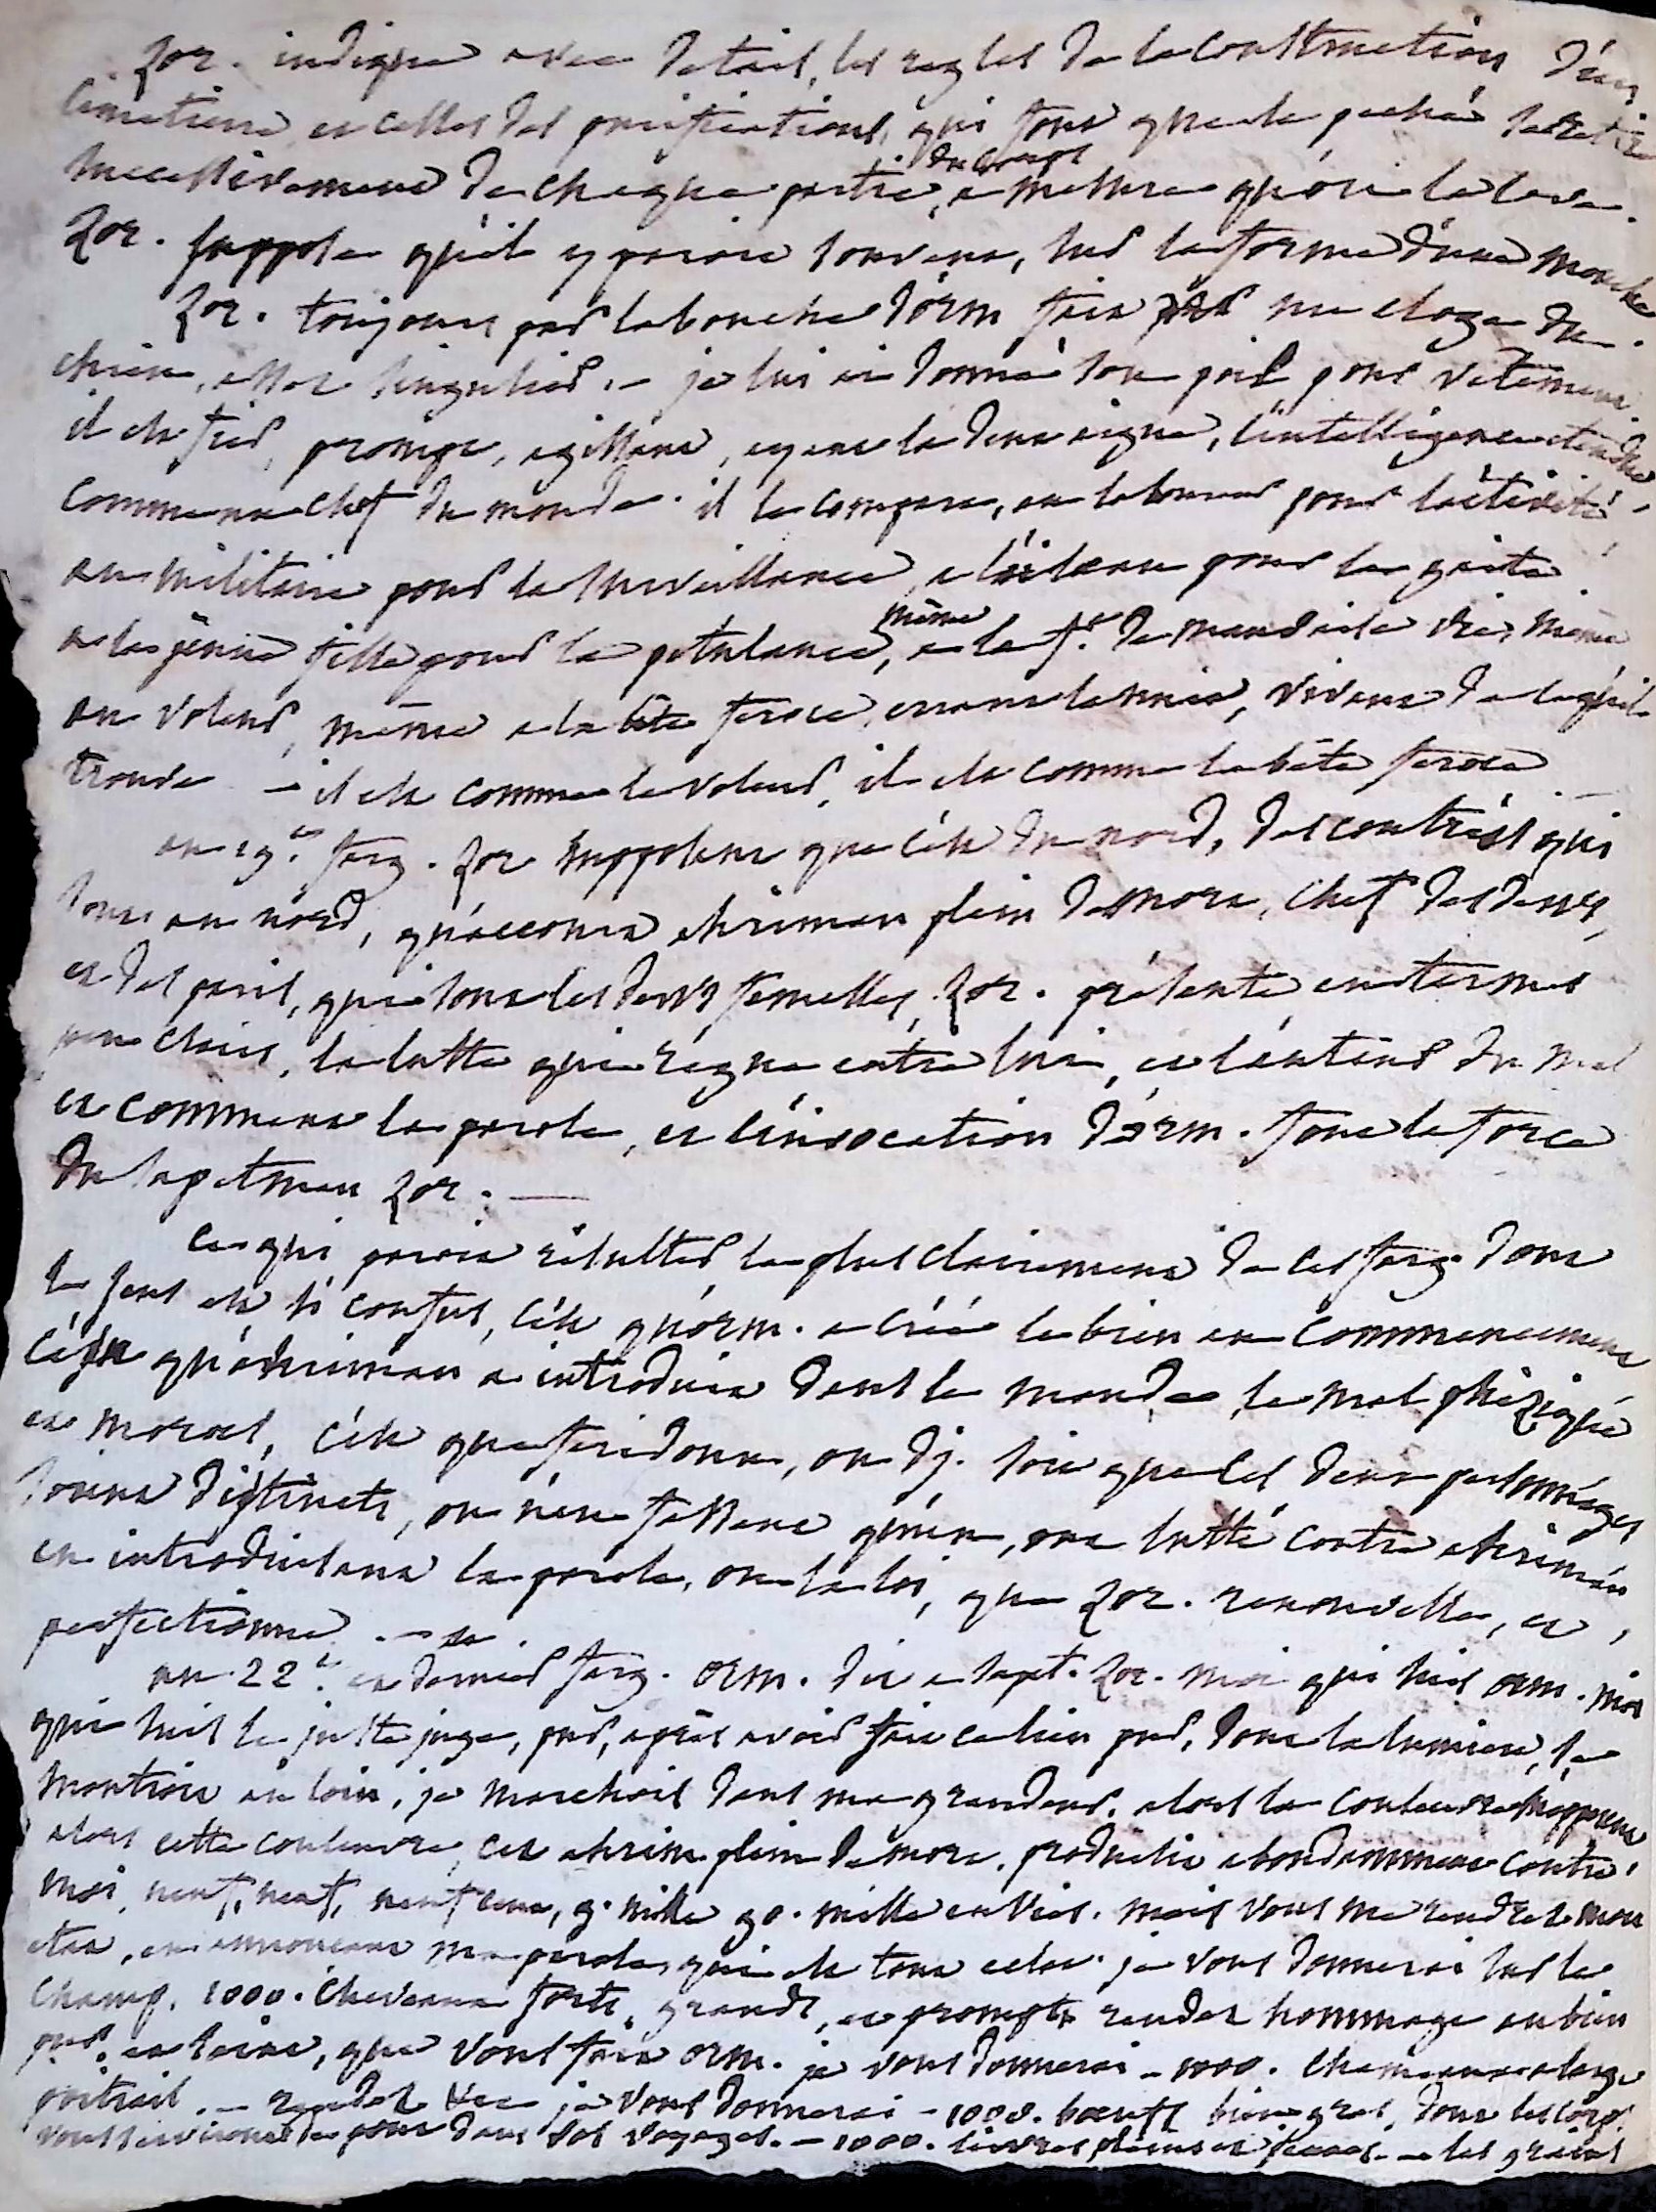 Zor. indique avec detail, les regles de la construction d'un
cimetiere et celles des purifications, qui font que le peché se retire
successivement de chaque partie du corps, a mesure qu'on le lave.
Zor. suppose qu'il y paroit souvent, sus la forme d'une mouche
Zor. toujours par la bouche d'orm fait un eloge du
chien, assez singulier. – je lui ai donné son poil pour vetement
il est fier, prompt, agissant, ayant la dent aigue, l'intelligence etendue,
comme un chef du monde. il le compare, au laboureur pour l'activité,
au militaire pour la surveillance, a l'oiseau pour la gaité
a la jeune fille pour la petulance, même a la f.e de mauvaise vie, même
au voleur, même a la bête feroce, errant la nuit, vivant de ce qu'il
trouve – il est comme le voleur, il est comme la bête feroce –
au 19.e farg. Zor supposant que c'est du nord, des contrées qui
sont au nord, qu'accourt ahriman plein de mort, chef des dews,
et des paris, qui sont les dews femelles, Zor. présente, en termes
peu clairs, la lutte qui regne entre lui, et l'auteur du mal
et comment la parole, et l'invocation d'orm. font la force
du sapetman Zor. —
Ce qui paroit résulter le plus clairement de ces farg. dont
le sens est si confus, c'est qu'orm. a créé le bien au commencement
c'est qu'ahriman a introduit dans le monde, le mal phizique
et moral, c'est que feridoun, ou Dj. soit que ces deux personnages
soient distincts, ou n'en fassent qu'un, ont lutté contre ahriman
en introduisant la parole, ou la loi, que Zor. renouvelle, et,
perfectionne. –
au 22.e et dernier farg. orm. dit a sapt. Zor. moi qui suis orm. moi
qui suis le juste juge, pur, après avoir fait ce lieu pur, dont la lumiere, se
montroit au loin, je marchois dans ma grandeur. alors la couleuvre m'apperçut
alors cette couleuvre, cet ahrim. plein de mort. produisit abondamment contre
moi, neuf, neuf, neuf cent, 9. mille 90. mille envies. mais vous me rendrez mon
etat, en annoncant ma parole, qui est tout eclat. je vous donnerai sur le
champ. 1000. chevaux forts, grands, et prompts rendez hommage au bien
pur. et saint, que vous fait orm. je vous donnerai – 1000. chameaux a large
poitrail. – rendez &c je vous donnerai – 1000. boeufs bien gras, dont les corps
vous serviront dans vos voyages. – 1000. – les grains